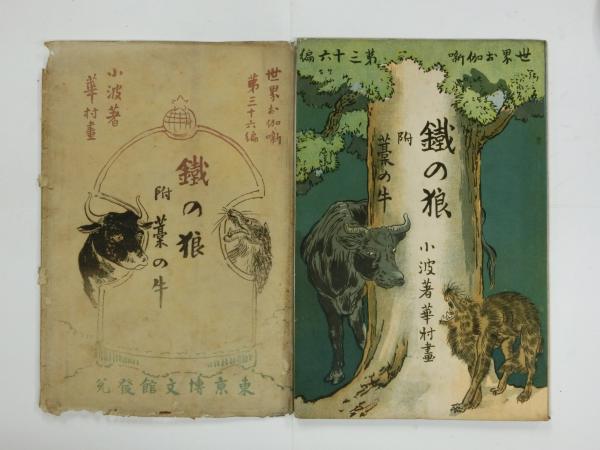 世界お伽噺
第三十六編
鐵の狼
附 藁の牛
小波著
華村畫
東京博文館發兌
世界お伽噺 第三十六編
鐵の狼
附 藁の牛
小波著華村畫